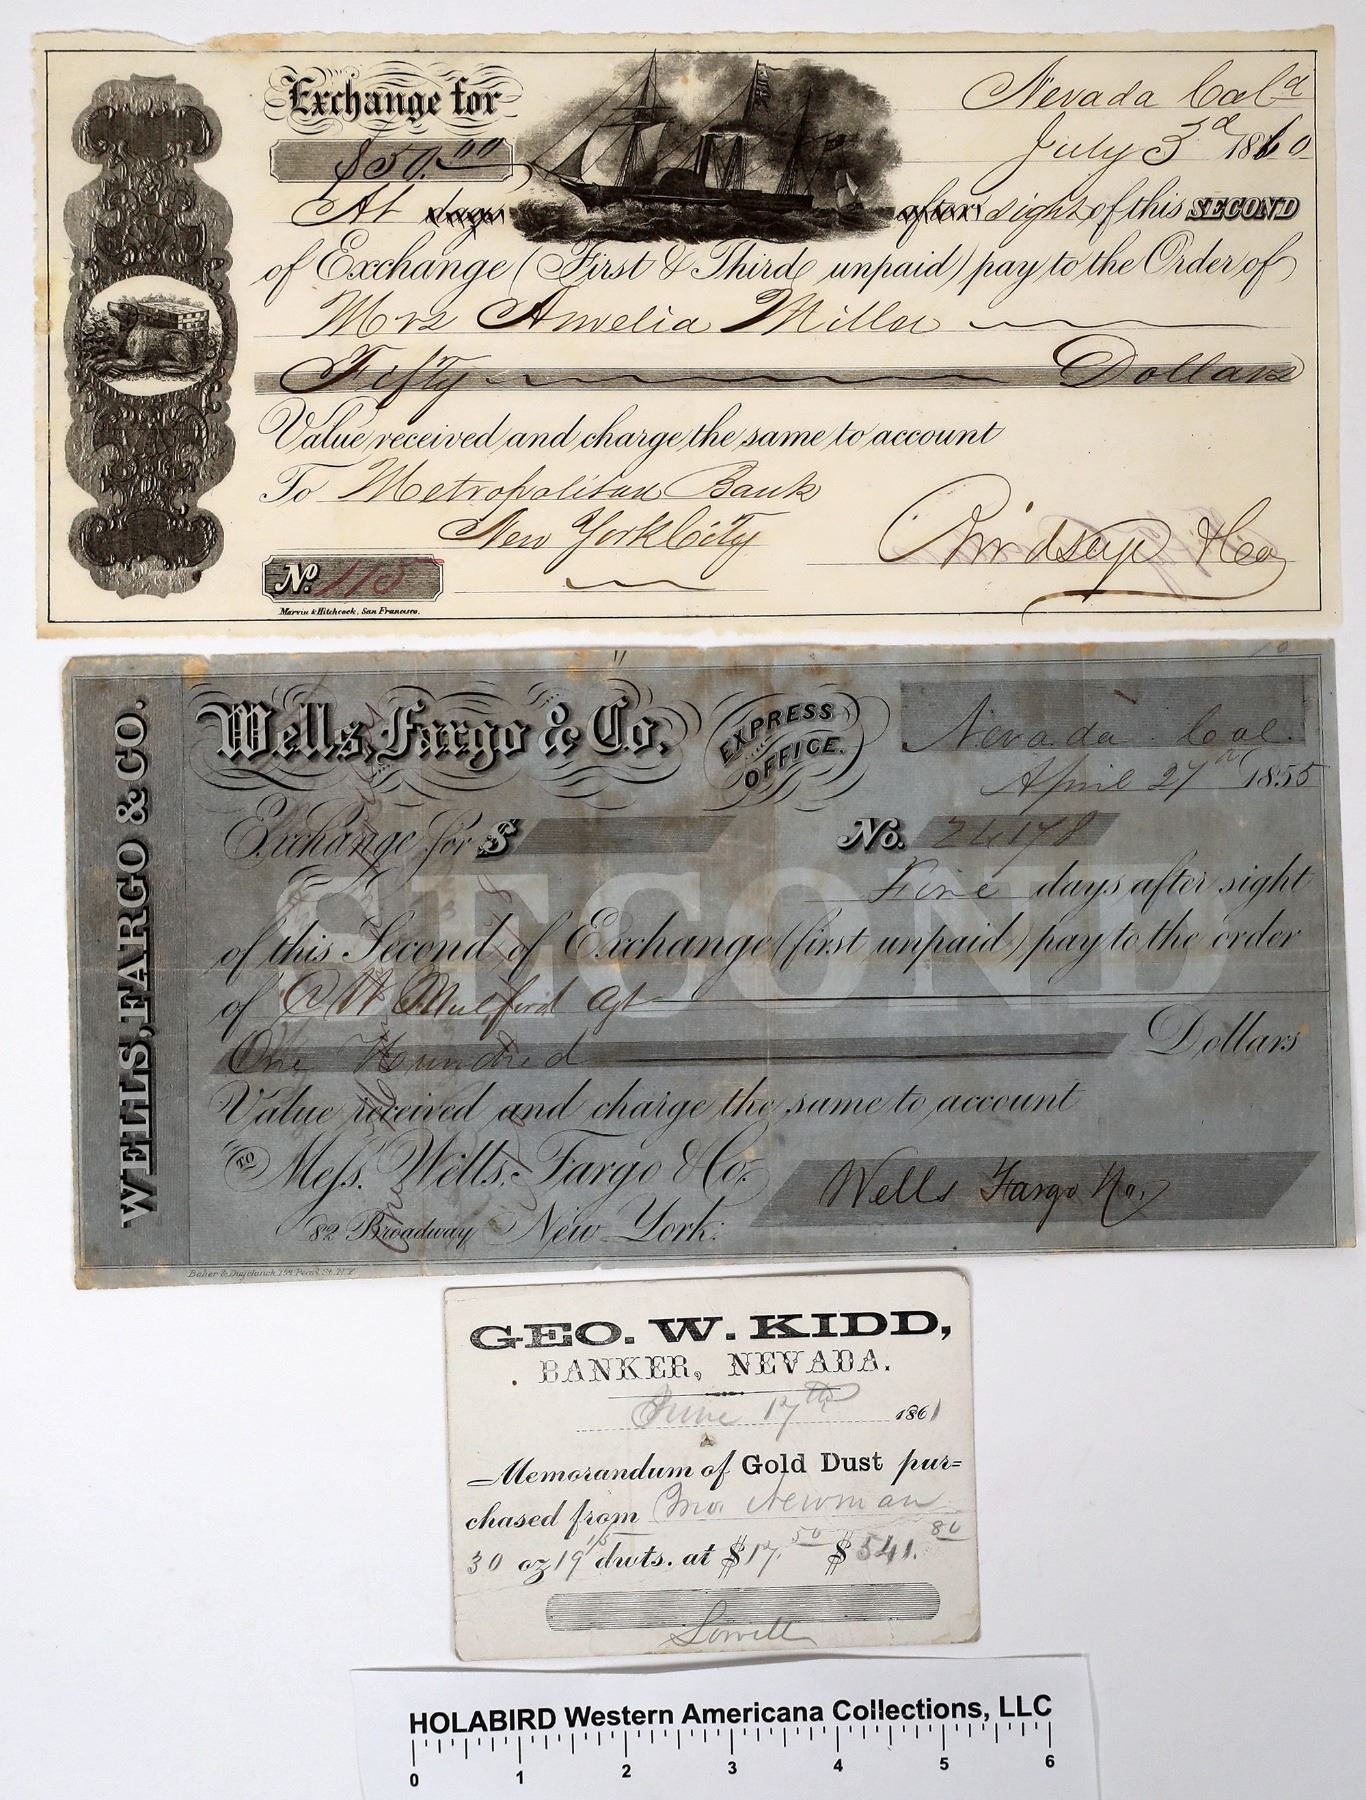 Exchange for
Nevada Cala
July 3d 1860
$50.00
At days after sight of this SECOND
of Exchange (First & Third unpaid) pay to the Order of
Mrs Amelia Miller
Fifty Dollars
Value received and charge the same to account
To Metropolitan Bank
New York City
Birdseye & Co
No. 115
Marvin & Hitchcock, San Francisco.
WELLS, FARGO & CO.
Wells, Fargo & Co. EXPRESS OFFICE.
Nevada Cal
April 27th 1855
Exchange for $ No. 24178
Five days after sight
of this Second of Exchange (first unpaid) pay to the order
of Mulford Agt
One Hundred Dollars
Value received and charge the same to account
TO Mess. Wells, Fargo & Co.
Wells Fargo & Co.
82 Broadway New York.
Baker & Duyckinck 158 Pearl St. N.Y.
GEO. W. KIDD,
BANKER, NEVADA.
June 17th 1861
Memorandum of Gold Dust pur=
chased from Newman
30 oz 19 dwts. at $17.50 $541.80
HOLABIRD Western Americana Collections, LLC
0 1 2 3 4 5 6